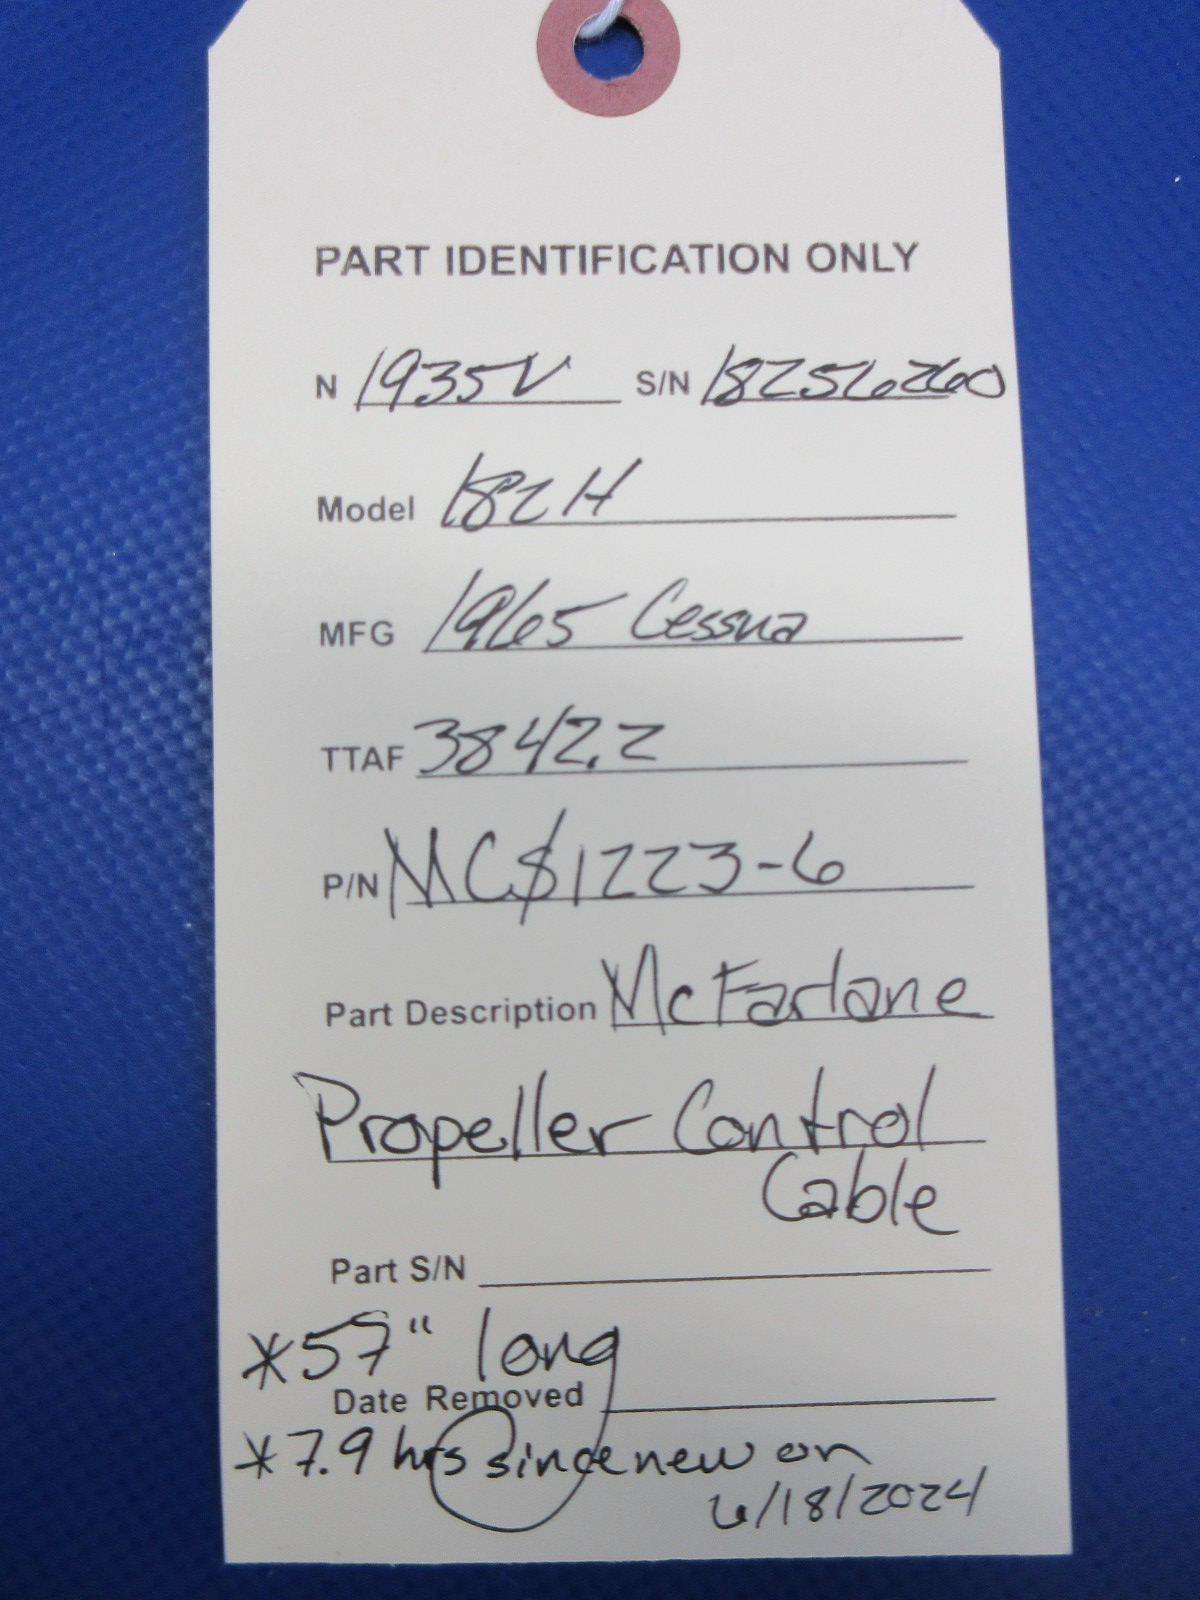 PART IDENTIFICATION ONLY
N 1935V S/N 18256260
Model 182H
MFG 1965 Cessna
TTAF 3842.2
P/N MC$1223-6
Part Description McFarlane
Propeller Control
Cable
Part S/N
*57" long
Date Removed
*7.9 hrs since new on
6/18/2024